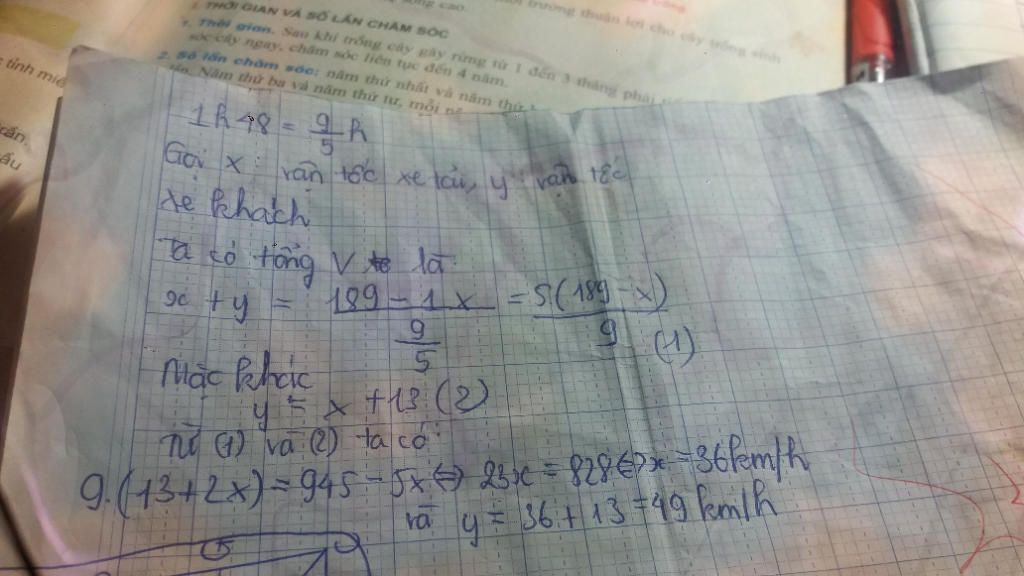 I. THỜI GIAN VÀ SỐ LẦN CHĂM SÓC
1. Thời gian. Sau khi trồng cây gây rừng từ 1 đến 3 tháng phải
sóc cây ngay, chăm sóc liên tục đến 4 năm.
2. Số lần chăm sóc: năm thứ nhất và năm thứ
Năm thứ ba và năm thứ tư, mỗi
trường thuận lợi cho cây trồng sinh
tỉnh miề
1h 48 = 9/5 h
Gọi x: vận tốc xe tải, y: vận tốc
xe khách
Ta có tổng V là
x + y = (189 - 1x)/(9/5) = 5(189 - x)/9 (1)
Mặc khác
y = x + 13 (2)
Từ (1) và (2) ta có:
9.(13+2x) = 945 - 5x ⇔ 23x = 828 ⇔ x = 36km/h
và y = 36 + 13 = 49 km/h